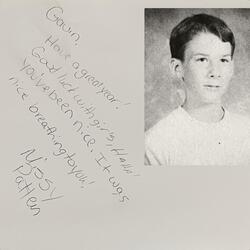 Gavin,
Have a great year!
Good luck with girls, Haha!
You've been nice. It was
nice breathing to you!
Missy
Patten